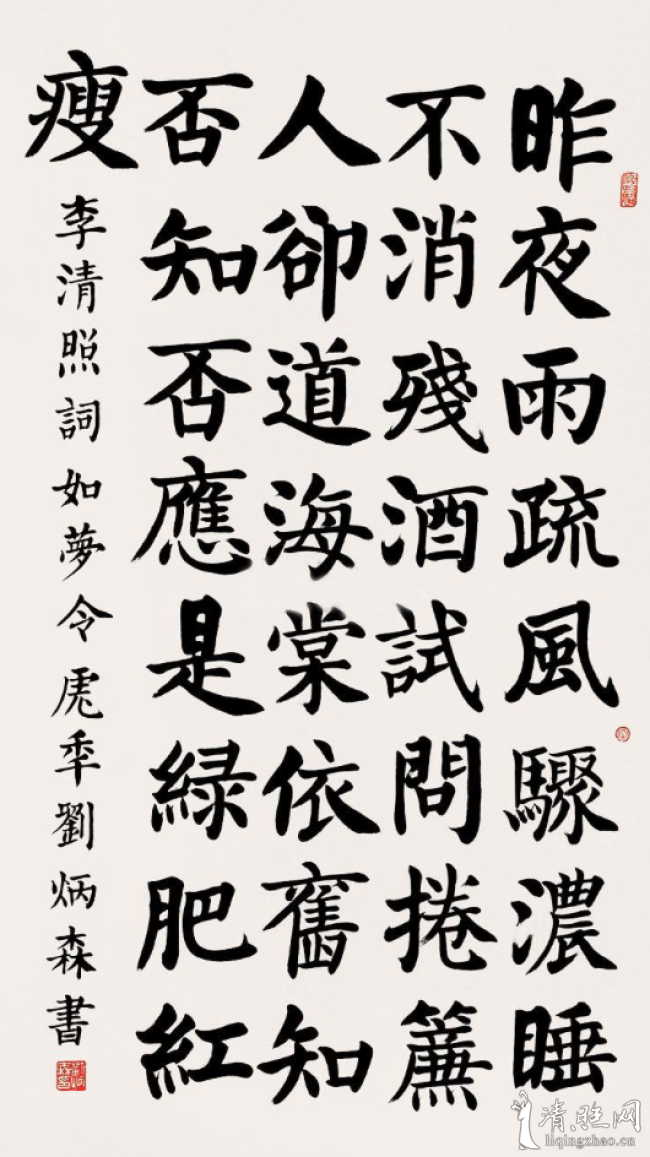 昨夜雨疏風驟濃睡
不消殘酒試問捲簾
人卻道海棠依舊知
否知否應是綠肥紅
瘦
李清照詞如夢令虎秊劉炳森書
liqingzhao.cn